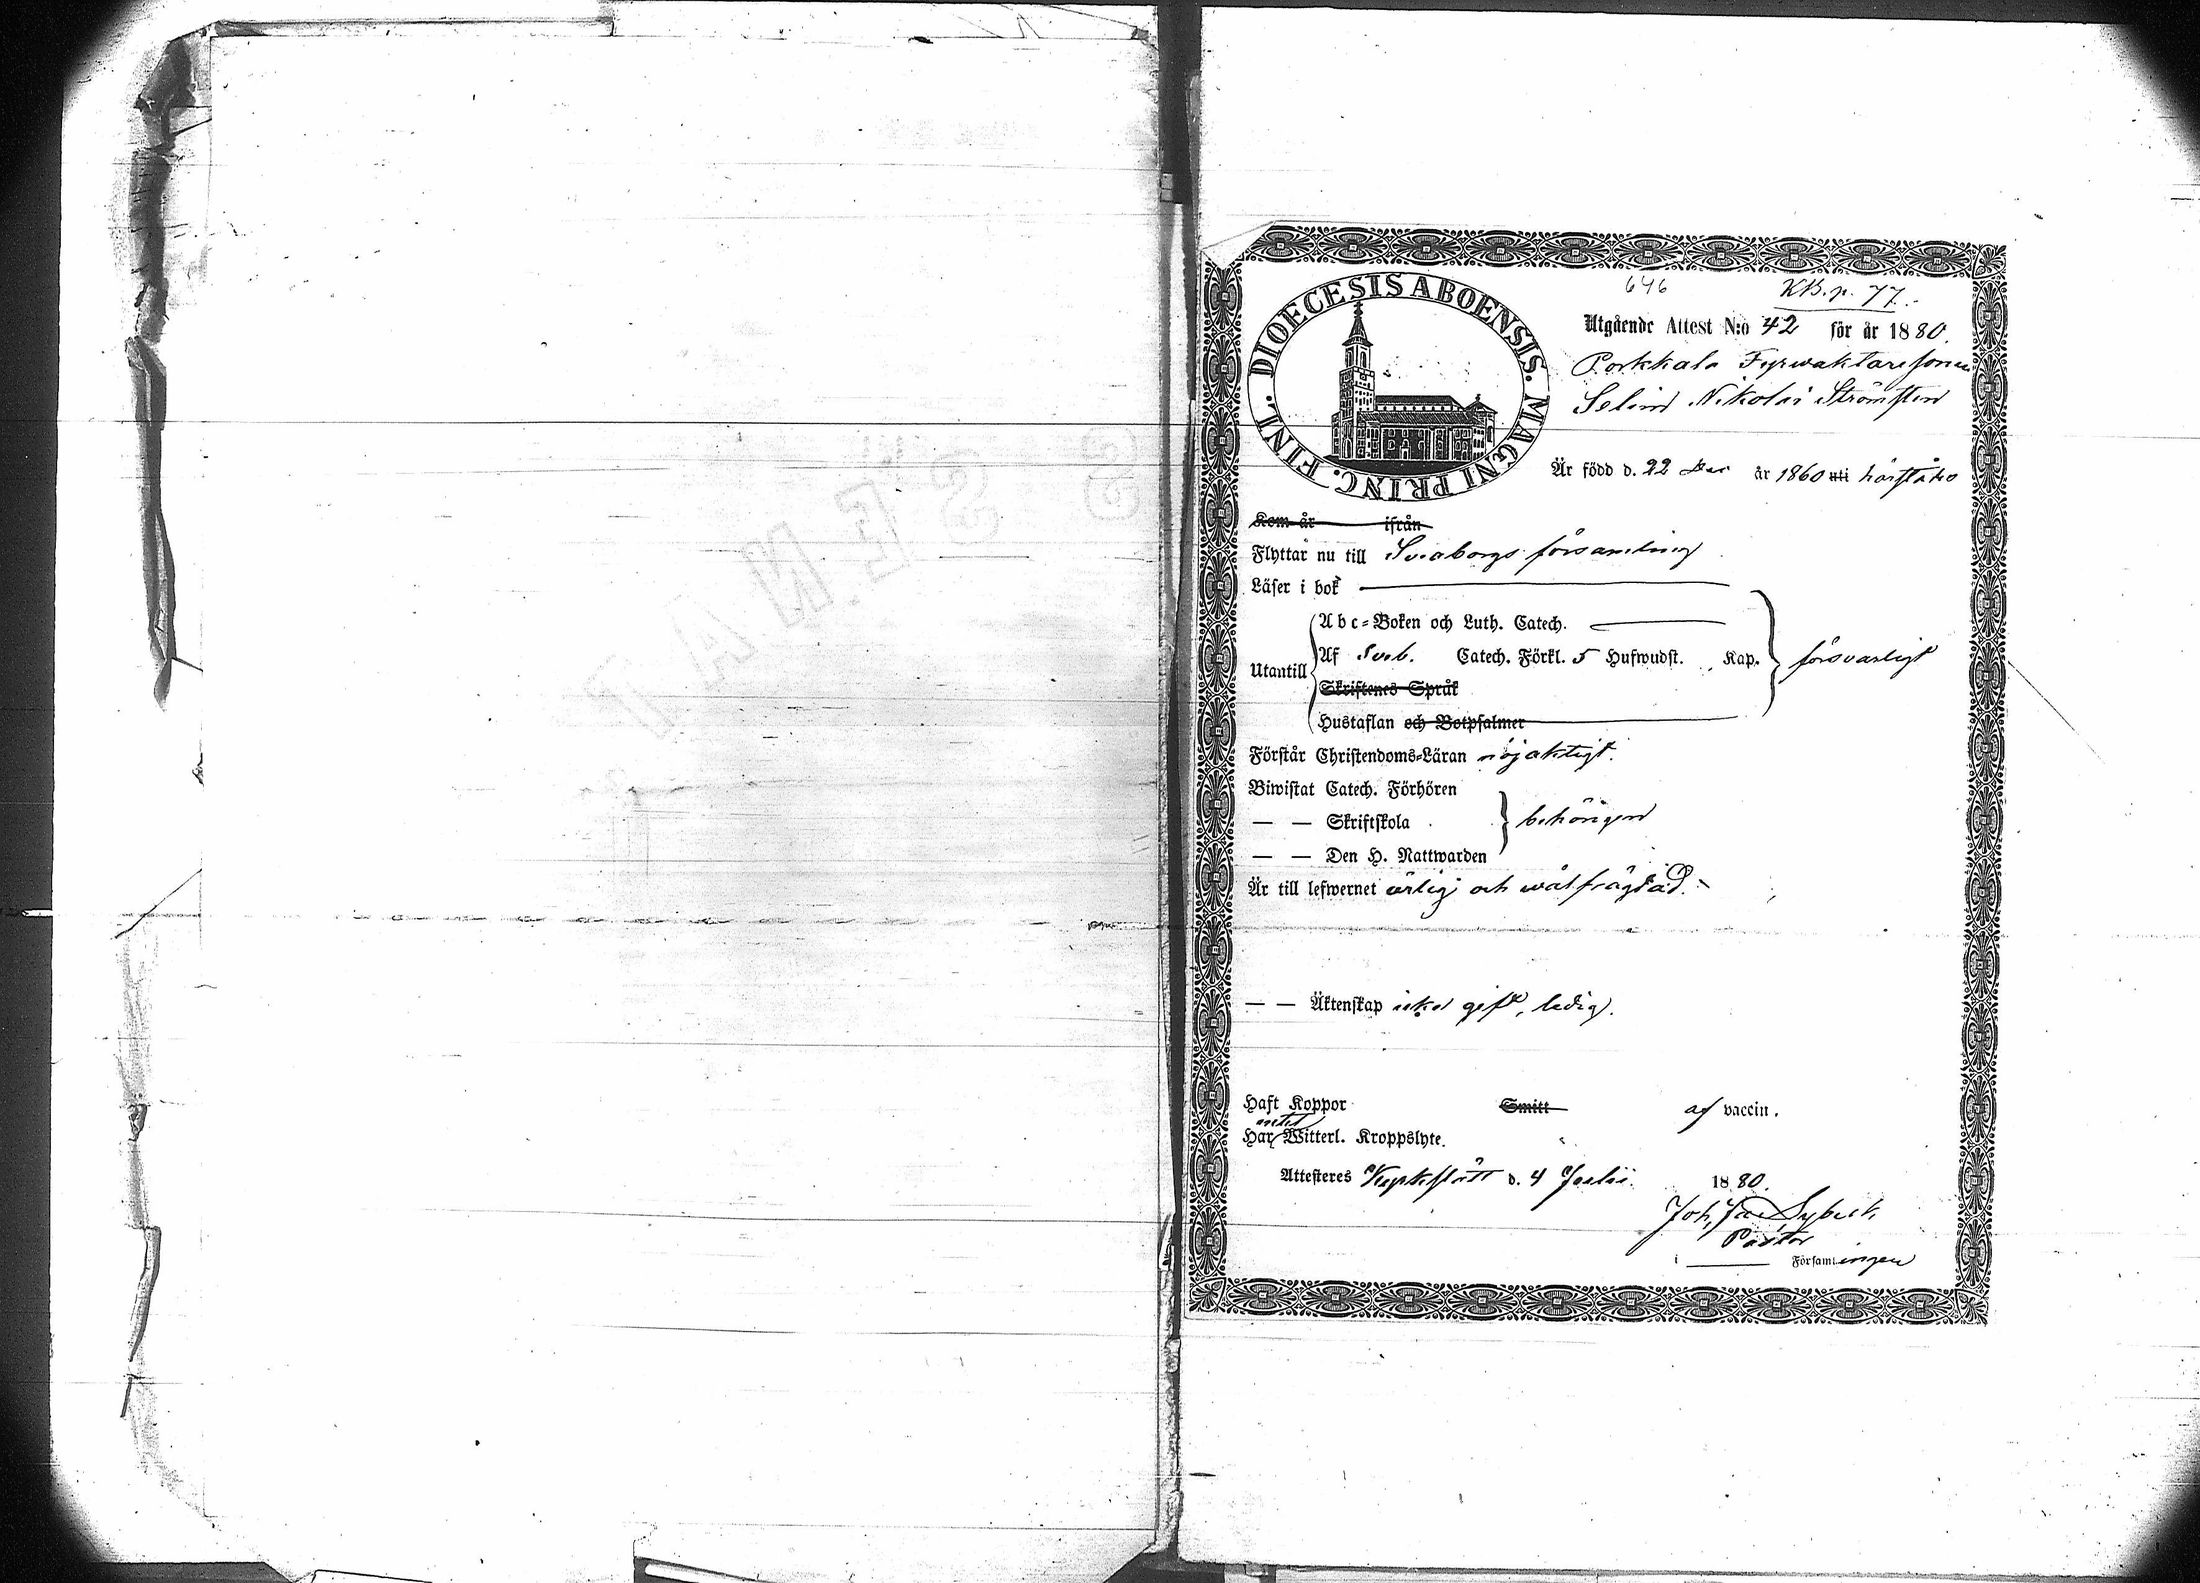 646
KB. p. 77.
DIOECESIS ABOENSIS. MAGNI PRINC. FINL.
Utgående Attest N:o 42 för år 1880.
Porkkala Fyrwaktaresonen
Selim Nikolai Strömsten
Är född d. 22 Dec år 1860 uti härstädes
Kom år ifrån
Flyttar nu till Sveaborgs församling
Läser i bok
Abc-Boken och Luth. Catech.
Utantill Af Sveb. Catech. Förkl. 5 Hufwudst. Kap. försvarligt
Skriftenes Språk
Hustaflan och Botpsalmer
Förstår Christendoms-Läran nöjaktigt.
Biwistat Catech. Förhören
— — Skriftskola behörigen
— — Den H. Nattwarden
Är till lefwernet ärlig och wälfrägdad.
— — Äktenskap icke gift, ledig.
Haft Koppor Smitt af vaccin.
Har intet Witterl. Kroppslyte.
Attesteres Kyrkslätt d. 4 Julii 1880.
Joh. Jac Sybeck
Pastor
i Församlingen